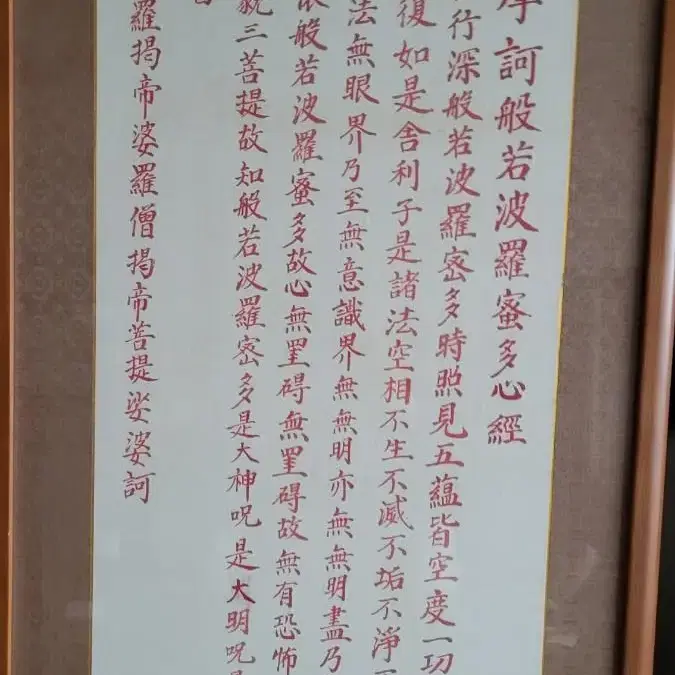 訶般若波羅蜜多心經
行深般若波羅密多時照見五蘊皆空度一切
復如是舍利子是諸法空相不生不滅不垢不淨
法無眼界乃至無意識界無無明亦無無明盡乃
依般若波羅蜜多故心無罣碍無罣碍故無有恐怖
藐三菩提故知般若波羅密多是大神呪是大明呪是
羅揭帝婆羅僧揭帝菩提娑婆訶